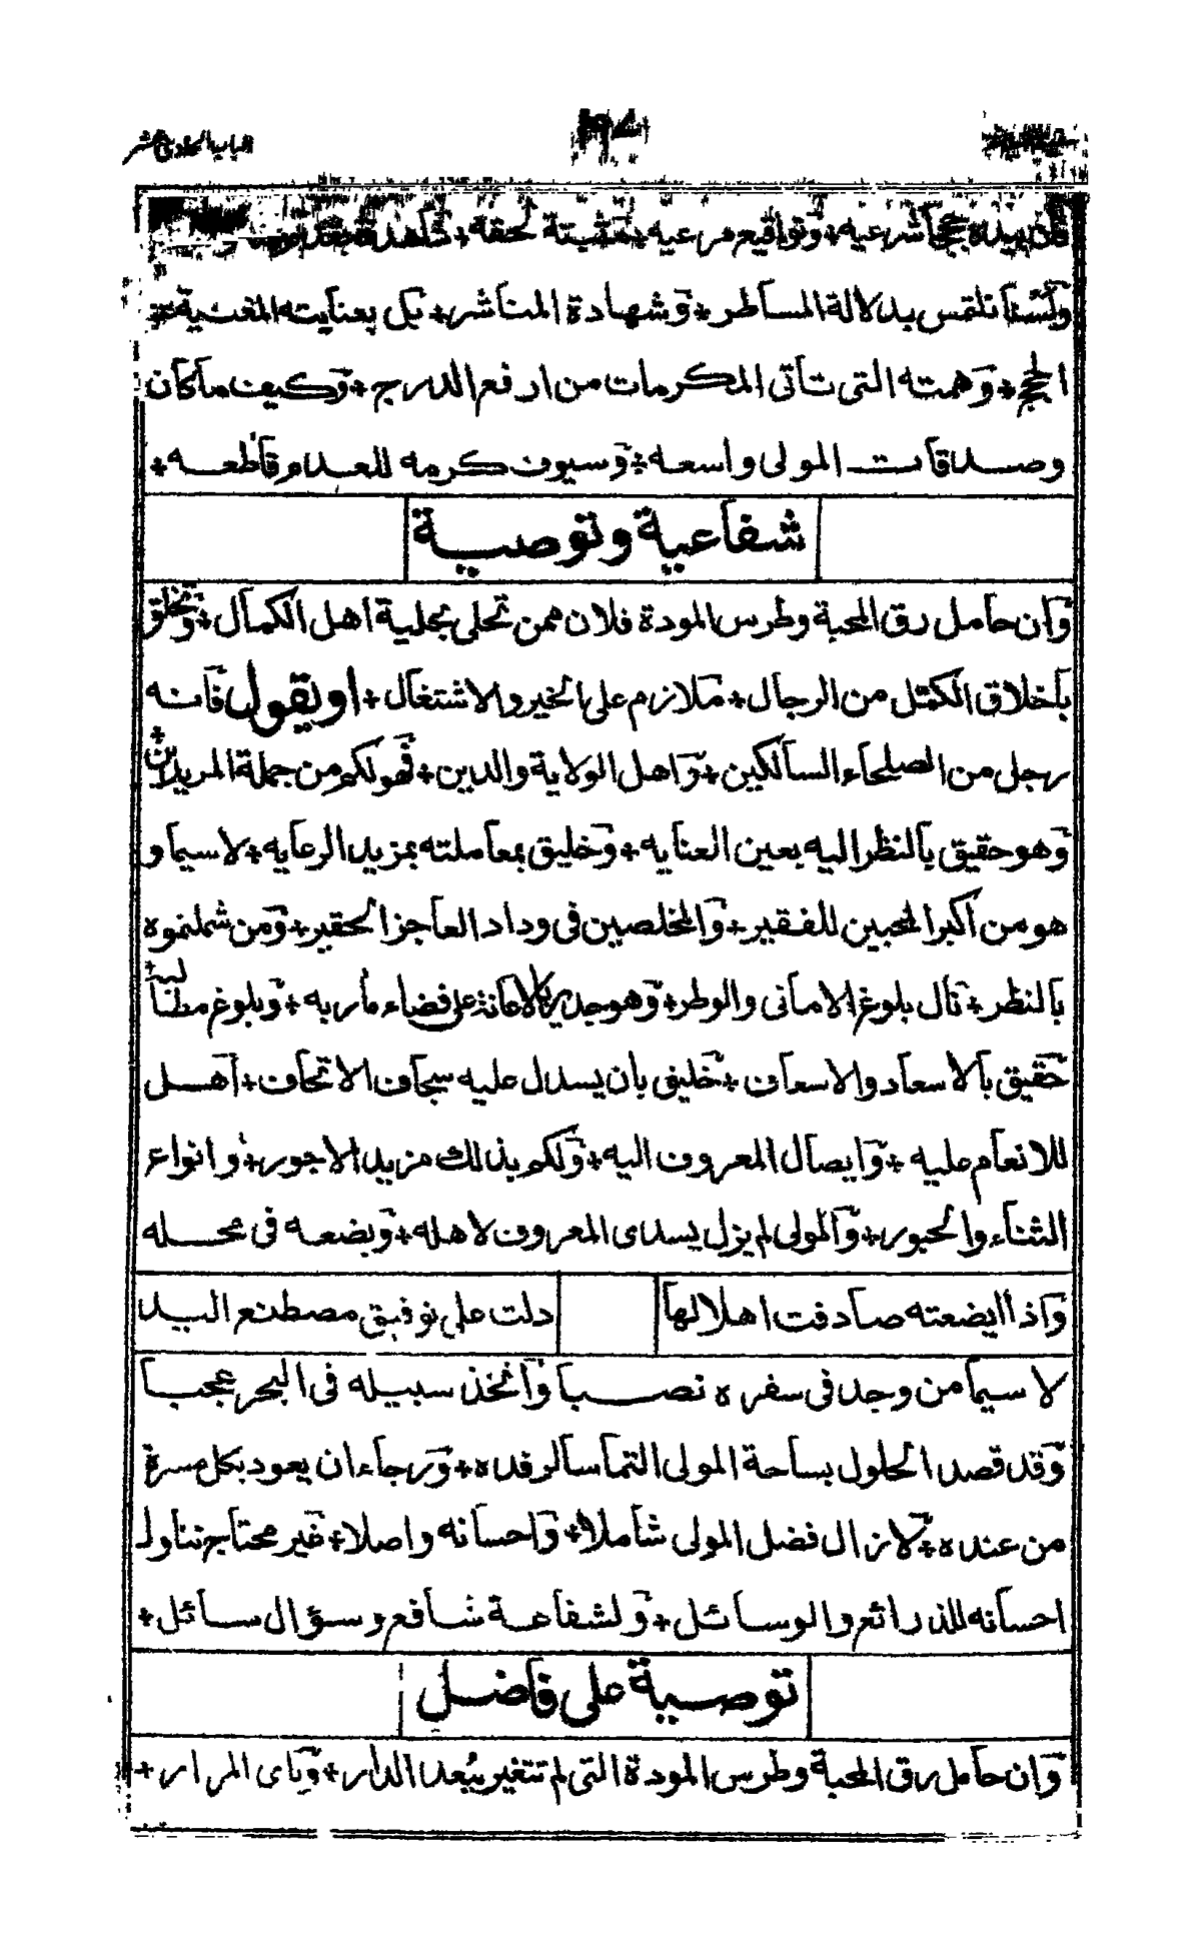 الباب الحادي عشر
فان بيده حججا شرعيه + وتواقيع مرعيه + مثبتة لحقه + شاهدة
ولسنا نلتمس بدلالة المساطر + وشهادة المناشر + بل بعنايته المغنية عن
الحجج + وهمته التى تأتى المكرمات من ارفع الدرج + وكيف ما كان
وصداقات المولى واسعه + وسيوف كرمه للعدام قاطعه +
شفاعية وتوصية
وان حامل رق المحبة وطرس المودة فلان ممن تحلى بحلية اهل الكمال + وتخلق
باخلاق الكمّل من الرجال + ملازم على الخير والاشتغال + او يقول فانه
رجل من الصلحاء السالكين + واهل الولاية والدين + فهو لكم من جملة المريدين +
وهو حقيق بالنظر اليه بعين العنايه + وخليق بمعاملته بمزيد الرعايه + لا سيما و
هو من اكبر المحبين للفقير + والمخلصين فى وداد العاجز الحقير + ومن شملتموه
بالنظر + نال بلوغ الامانى والوطر + وهو جدير بالاعانة على قضاء مأربه + وبلوغ مطالبه +
حقيق بالاسعاد والاسعاف + خليق بان يسدل عليه سجاف الاتحاف + اهل
للانعام عليه + وايصال المعروف اليه + ولكم بذلك مزيد الاجور + وانواع
الثناء والحبور + والمولى لم يزل يسدى المعروف لاهله + ويضعه فى محله
واذا ايضعته صادفت اهلا لها دلت على توفيق مصطنع اليد
لا سيما من وجد فى سفره نصبا واتخذ سبيله فى البحر عجبا
وقد قصد الحلول بساحة المولى التماسا لرفده + ورجاء ان يعود بكل مسرة
من عنده + لا زال فضل المولى شاملا + واحسانه واصلا + غير محتاج نناول
احسانه للذرائع والوسائل + ولشفاعة شافع وسؤال سائل +
توصية على فاضل
وان حامل رق المحبة وطرس المودة التى لم تتغير ببُعد الدار + ونأى المرار +